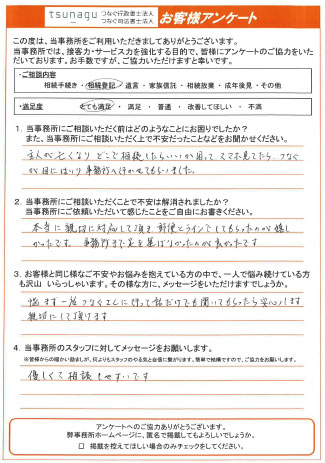 tsunagu つなぐ行政書士法人 つなぐ司法書士法人 お客様アンケート
この度は、当事務所をご利用いただきましてありがとうございます。
当事務所では、接客力・サービス力を強化する目的で、皆様にアンケートのご協力をいた
だいております。お手数ですが、ご協力いただけますと幸いです。
・ご相談内容
相続手続き・相続登記・遺言・家族信託・相続放棄・成年後見・その他
・満足度 とても満足・満足・普通・改善してほしい・不満
1. 当事務所にご相談いただく前はどのようなことにお困りでしたか？
また、当事務所にご相談いただく上で不安だったことなどをお聞かせください。
主人が亡くなり どこで相談したらいいか困って スマホ見てたら、つなぐ
が目にはいり 事務所へ行かせてもらいました。
2. 当事務所にご相談いただくことで不安は解消されましたか？
当事務所にご依頼いただいて感じたことをご自由にお書きください。
本当に親切に対応して頂き 郵便とラインでしてもらったのが嬉し
かったです。 事務所まで足を運ばなかったのが良かったです
3. お客様と同様なご不安やお悩みを抱えている方の中で、一人で悩み続けている方
も沢山 いらっしゃいます。その様な方に、メッセージをいただけますでしょうか。
悩まず一度つなぐさんに行って話だけでも聞いてもらったら安心します
親切にして頂けます
4. 当事務所のスタッフに対してメッセージをお願いします。
※皆様からの暖かい励ましが、何よりもスタッフのやる気と自信に繋がります。簡単で結構ですので、ご協力をお願いします。
優しくて相談しやすいです
アンケートへのご協力ありがとうございます。
弊事務所ホームページに、匿名で掲載してもよろしいでしょうか。
□ 掲載を控えてほしい場合のみチェックをしてください。